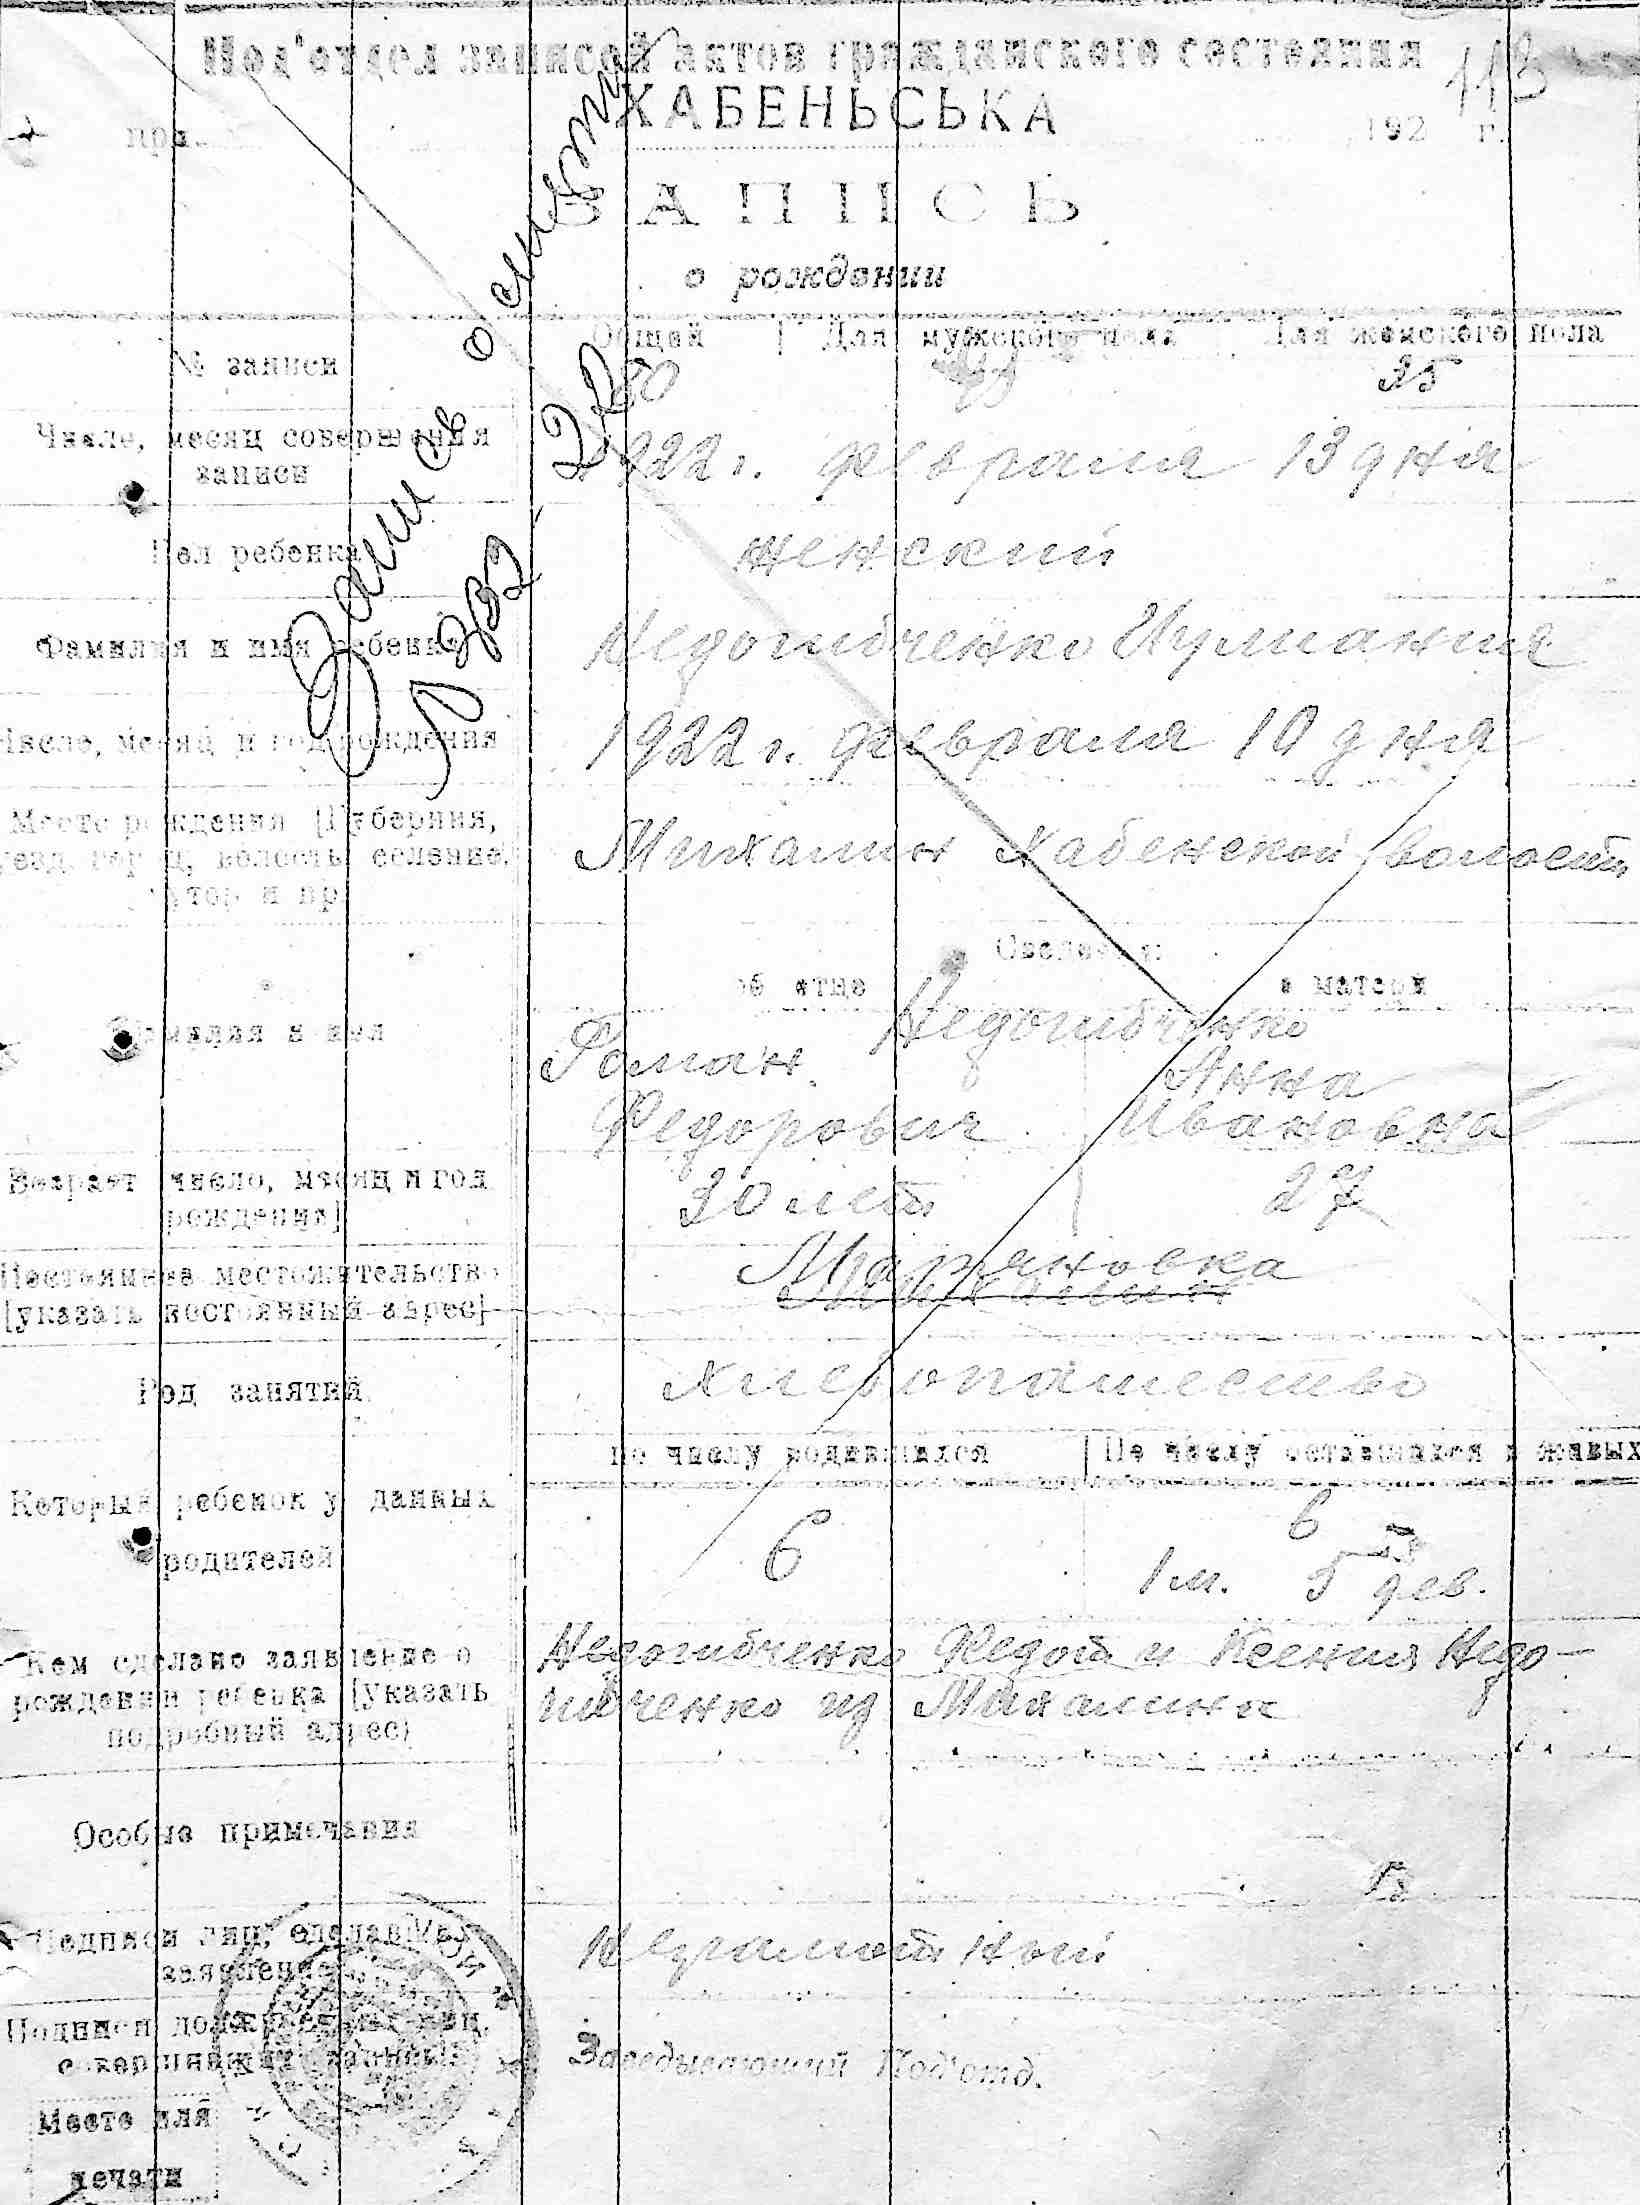 Под'отдел записей актов гражданского состояния
113
ХАБЕНЬСЬКА
при 192 г.
ЗАПИСЬ
о рождении
Общей Для мужского пола Для женского пола
№ записи 80 35
Число, месяц совершения
записи
1922 г. февраля 13 дня
Пол ребенка женский
Фамилия и имя ребенка Недошибченко Иулиания
Число, месяц и год рождения 1922 г. февраля 10 дня
Место рождения [Губерния,
уезд, город, волость, селение,
хутор и пр.
Михалин Хабенской волости
Сведения:
об отце о матери
Фамилия и имя
Недошибченко
Роман Анна
Федорович Ивановна
Возраст [число, месяц и год
рождения]
30 лет 27
Постоянное местожительство
[указать постоянный адрес]
Марьяновка
Михалин
Род занятий Хлебопашество
по числу родившихся По числу оставшихся в живых
Который ребенок у данных
родителей
6 6
1 м. 5 дев.
Кем сделано заявление о
рождении ребенка [указать
подробный адрес)
Недошибченко Федот и Ксения Недо-
шибченко из Михалина
Особые примечания
Подписи лиц, сделавших
заявление
Неграмотный
Подписи должностных лиц,
совершивших запись
Заведывающий Под'отд.
Место для
печати